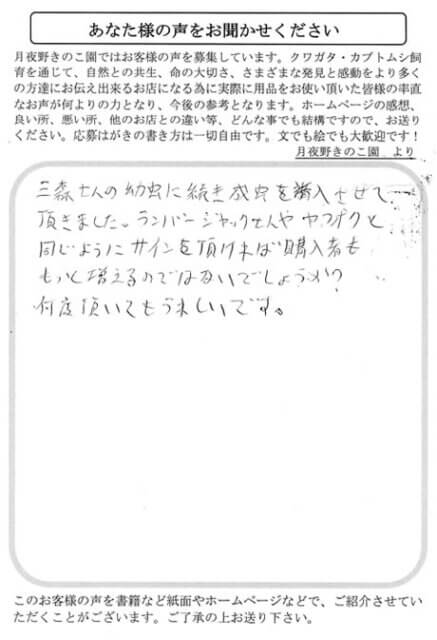 あなた様の声をお聞かせください
月夜野きのこ園ではお客様の声を募集しています。クワガタ・カブトムシ飼
育を通じて、自然との共生、命の大切さ、さまざまな発見と感動をより多く
の方達にお伝え出来るお店になる為に実際に用品をお使い頂いた皆様の率直
なお声が何よりの力となり、今後の参考となります。ホームページの感想、
良い所、悪い所、他のお店との違い等、どんな事でも結構ですので、お送り
ください。応募はがきの書き方は一切自由です。文でも絵でも大歓迎です！
月夜野きのこ園　より
三森さんの幼虫に続き成虫を購入させて
頂きました。ランバージャックさんやヤフオクと
同じようにサインを頂ければ購入者も
もっと増えるのではないでしょうか?
何度頂いてもうれしいです。
このお客様の声を書籍など紙面やホームページなどで、ご紹介させてい
ただくことがございます。ご了承の上お送り下さい。